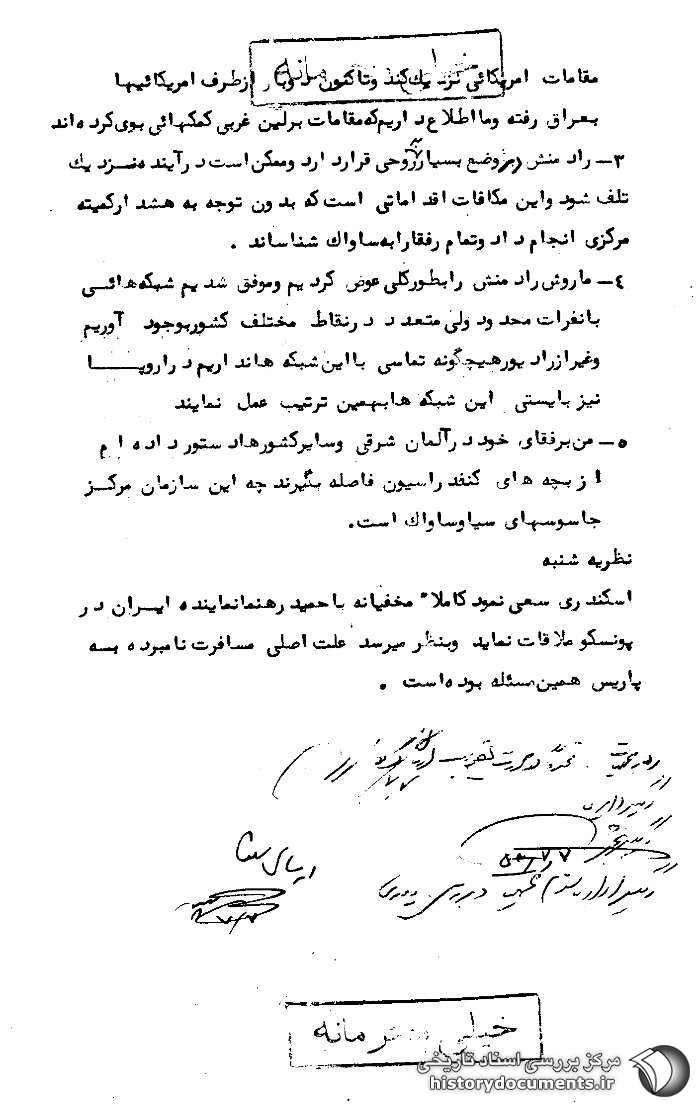 خیلی محرمانه
مقامات امریکائی نزدیک کند وتاکنون دوبار ازطرف امریکائیها
بعراق رفته وما اطلاع داریم که مقامات برلین غربی کمکهائی بوی کرده اند
۳ــ رادمنش در وضع بسیار روحی قرار دارد وممکن است در آینده نزدیک
تلف شود واین مکافات اقداماتی است که بدون توجه به هشدارکمیته
مرکزی انجام داد وتمام رفقارابه ساواک شناساند .
٤ــ ماروش رادمنش رابطورکلی عوض کردیم وموفق شدیم شبکه هائی
بانفرات محدود ولی متعدد درنقاط مختلف کشوربوجود آوریم
وغیرازرادیورهیچگونه تماسی بااین شبکه هانداریم دراروپا
نیز بایستی این شبکه هابهمین ترتیب عمل نمایند
٥ــ من برفقای خوددرآلمان شرقی وسایرکشورهادستور داده ام
از بچه های کنفدراسیون فاصله بگیرند چه این سازمان مرکز
جاسوسهای سیاوساواک است.
نظریه شنبه
اسکندری سعی نمود کاملاً مخفیانه باحمید رهنمانماینده ایران در
یونسکو ملاقات نماید وبنظر میرسد علت اصلی مسافرت نامبرده به
پاریس همین مسئله بوده است .
خیلی محرمانه
مرکز بررسی اسناد تاریخی
historydocuments.ir